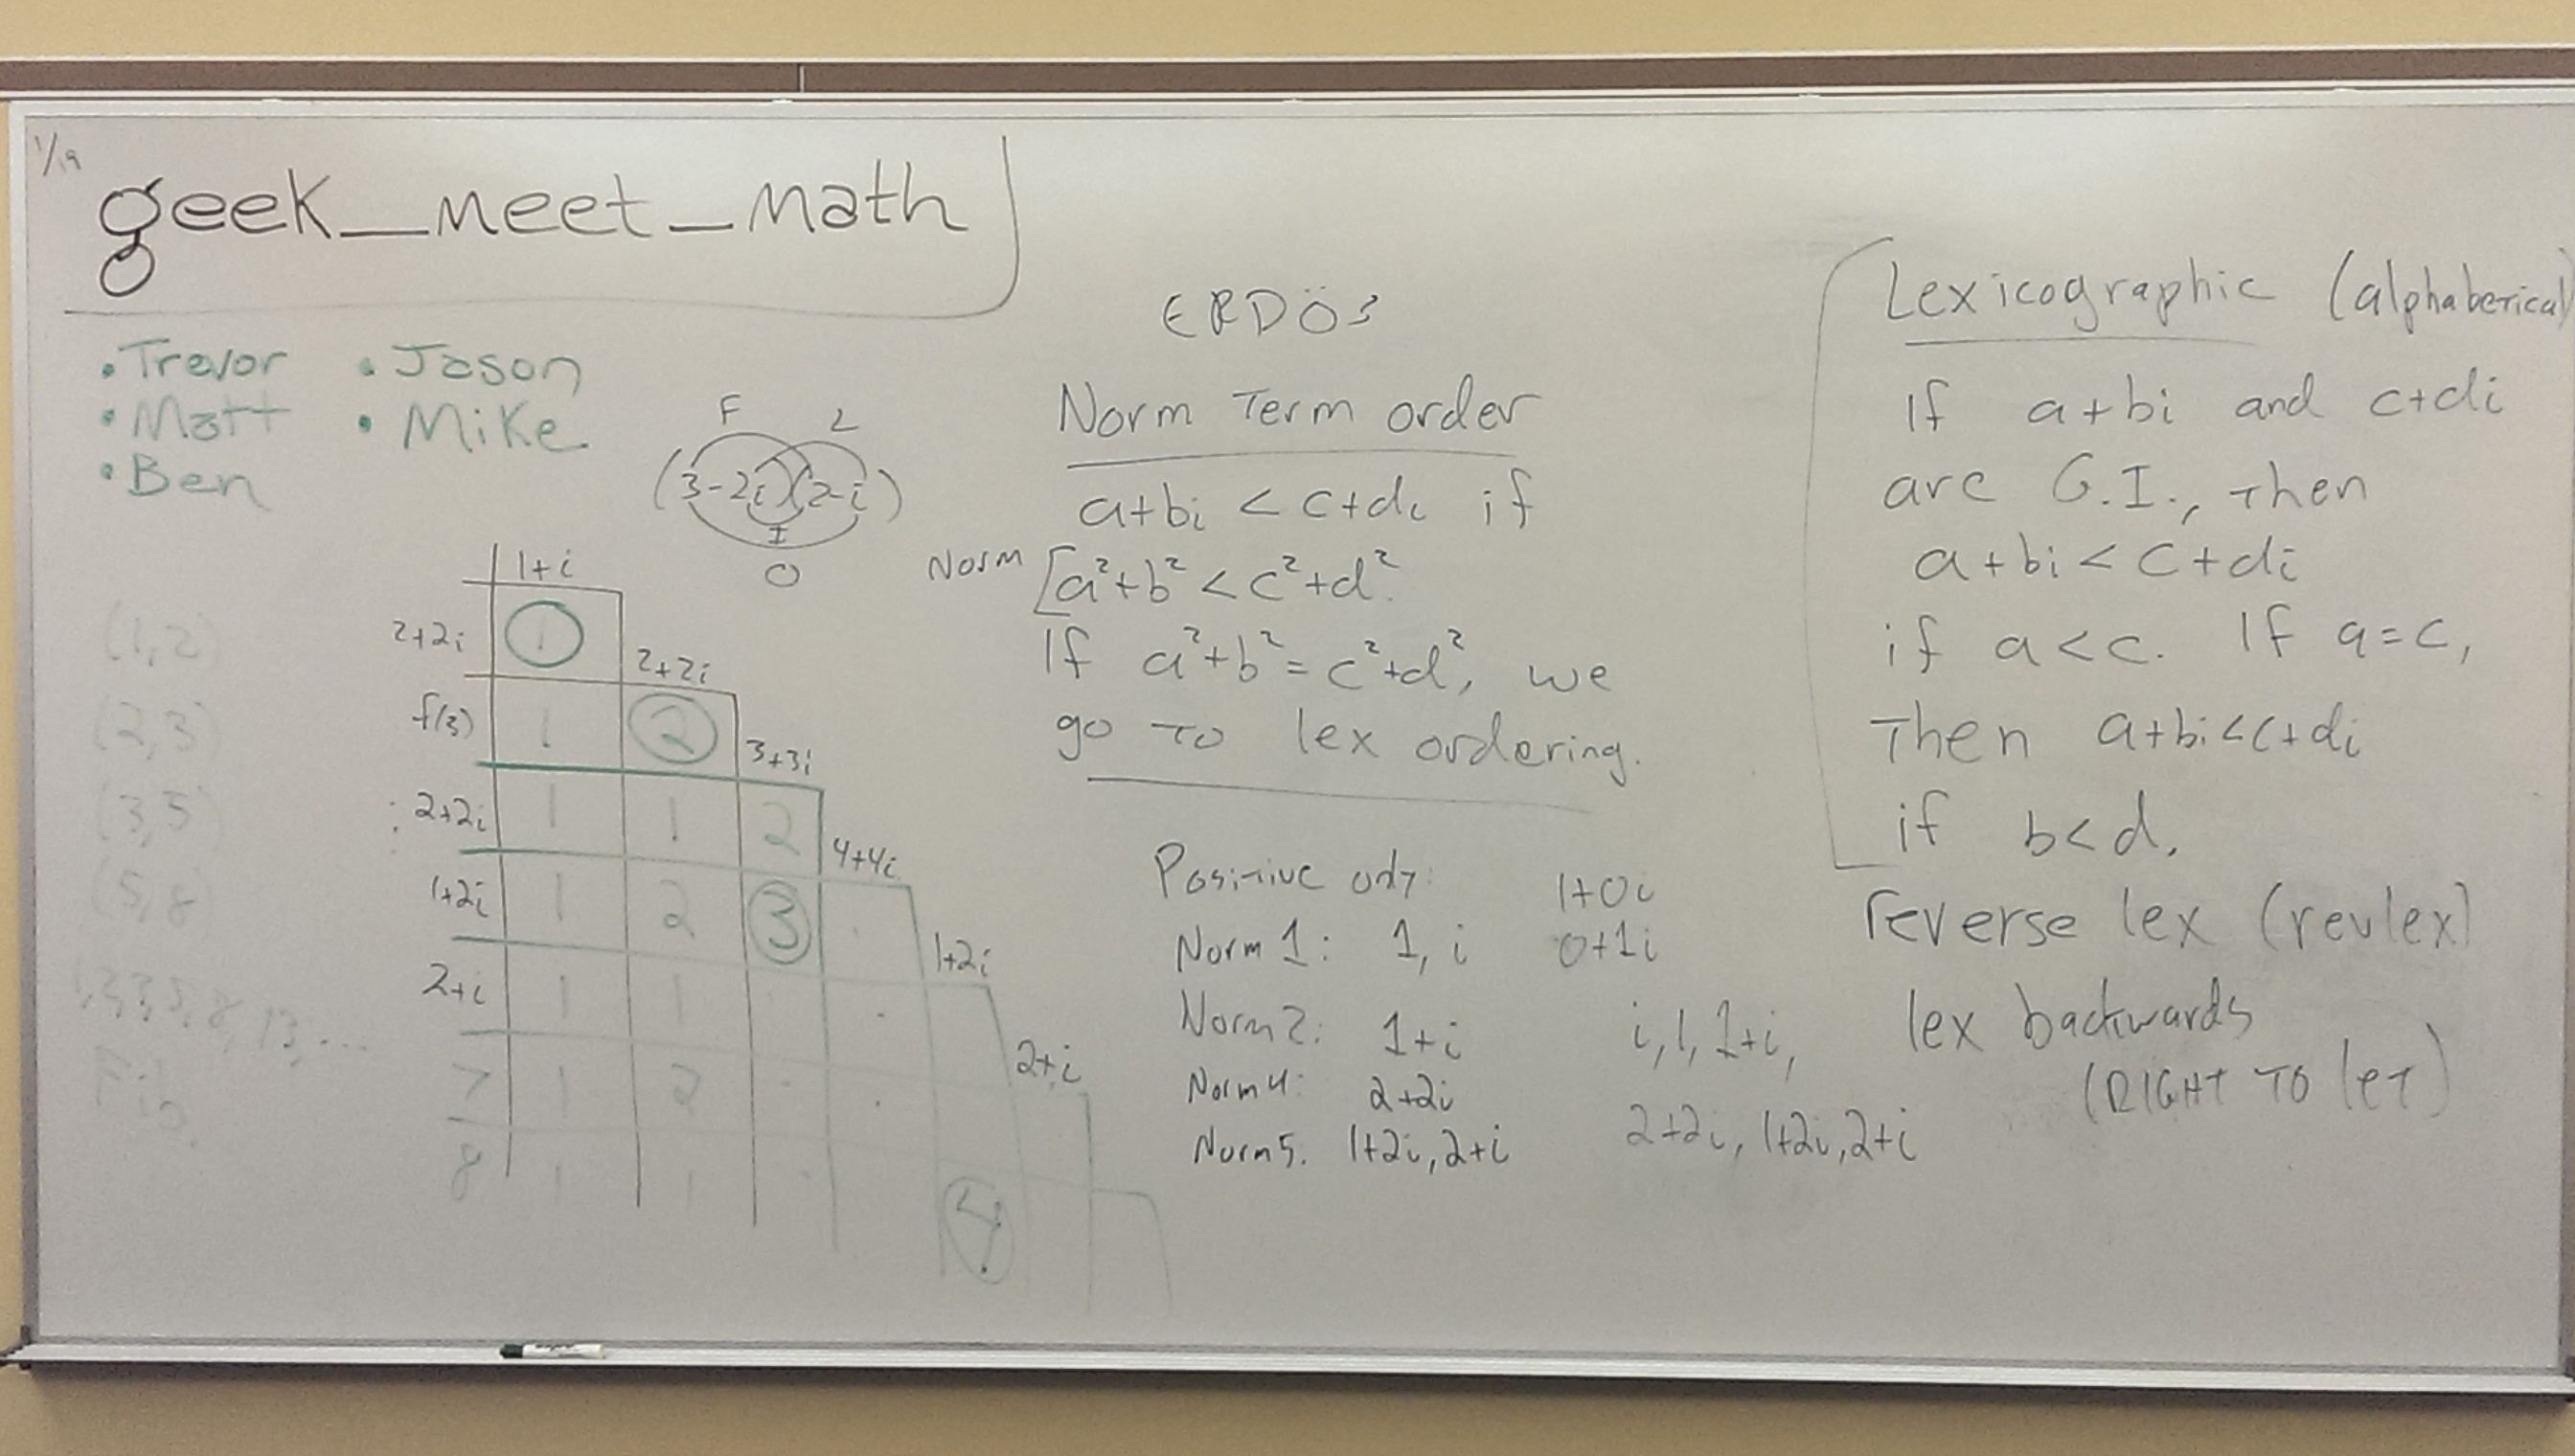 1/19
geek_meet_math
• Trevor • Jason
• Matt • Mike
• Ben
F L
(3-2i)(2-i)
I
O
1+i
2+2i 1
2+2i
f(3) 1 2
3+3i
2+2i 1 1 2
4+4i
1+2i 1 2 3
1+2i
2+i 1 1
2+i
7 1 2
8 1 1
4
(1,2)
(2,3)
(3,5)
(5,8)
1,2,3,5,8,13,...
Fib.
ERDÖS
Norm Term order
a+bi < c+di if
Norm [a²+b² < c²+d².
If a²+b² = c²+d², we
go to lex ordering.
Positive only: 1+0i
Norm 1: 1, i 0+1i
Norm 2: 1+i i, 1, 1+i,
Norm 4: 2+2i
Norm 5. 1+2i, 2+i 2+2i, 1+2i, 2+i
Lexicographic (alphaberical)
If a+bi and c+di
are G.I., then
a+bi < c+di
if a<c. If a=c,
Then a+bi<c+di
if b<d.
reverse lex (revlex)
lex backwards
(RIGHT TO leT)